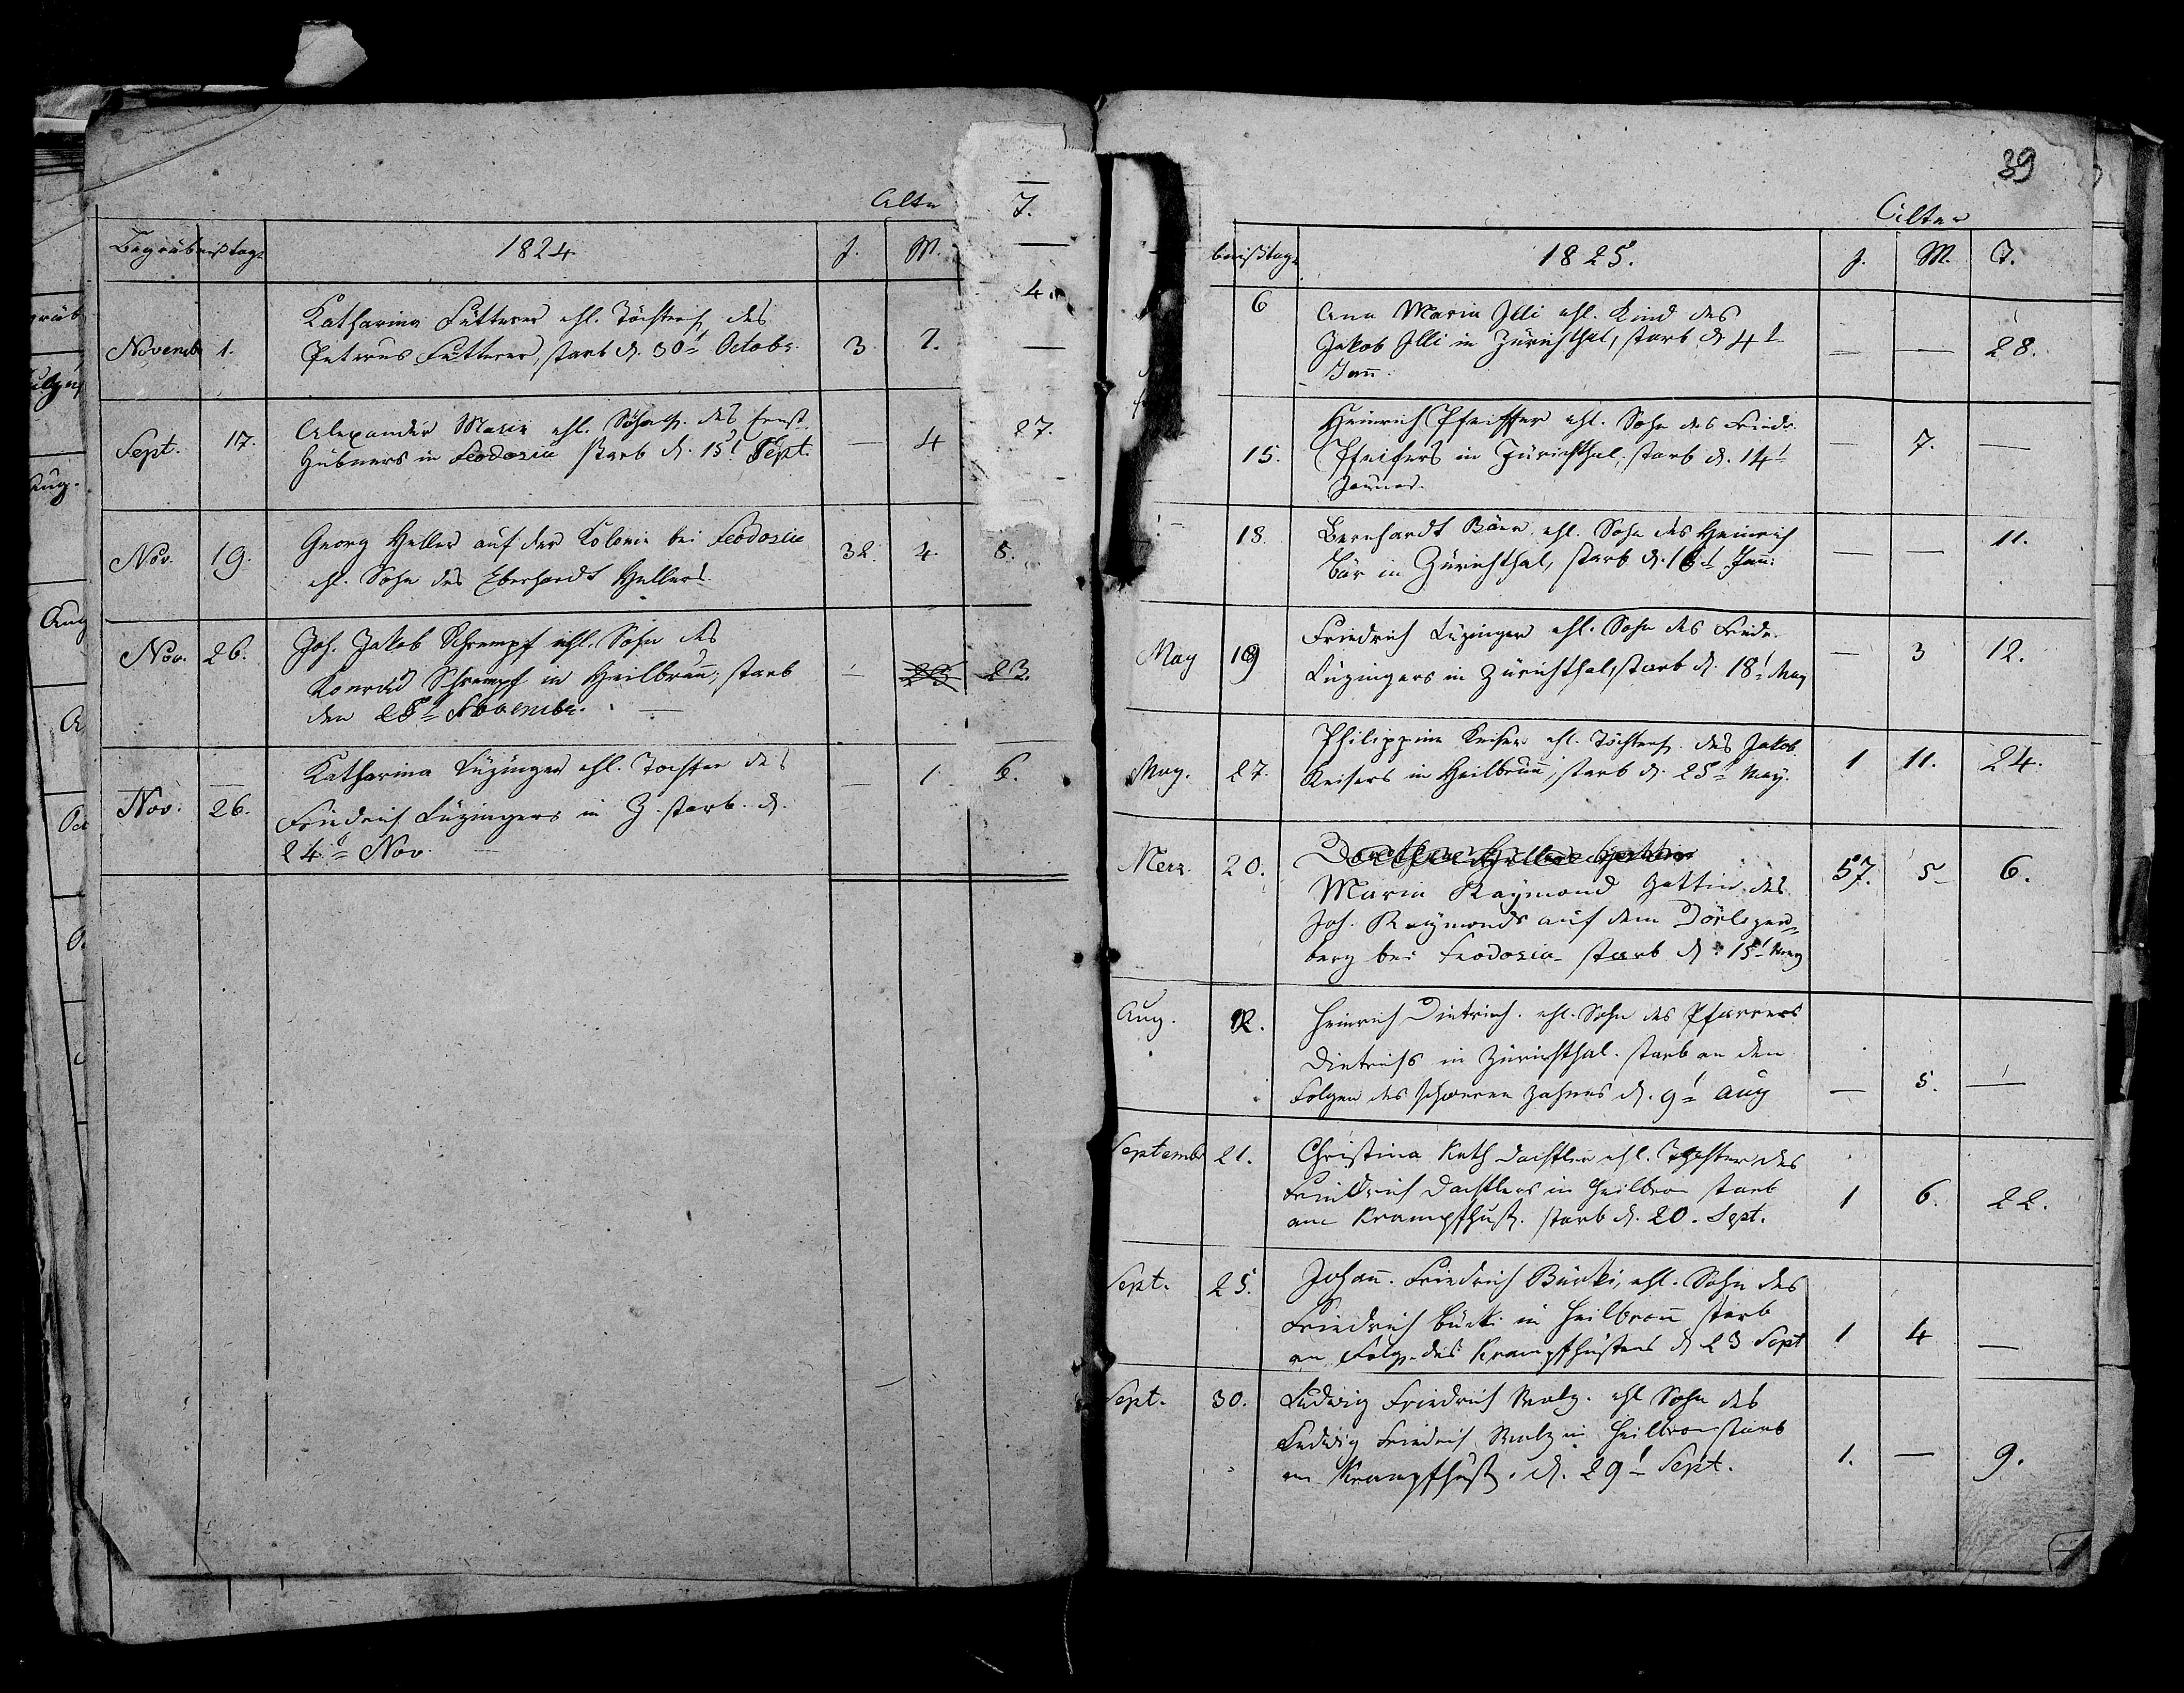 Alter
Begräbnißtage 1824 J. M. T.
Novembr 1. Katharina Fütterer ehl. Töchterch. des
Peterus Fütterer, starb d. 30t Octobr. 3 7. 4.
Sept. 17. Alexander Maria ehl. Söhnch. des Ernst
Hübners in Feodosia starb d. 15t Sept. — 4 27.
Nov. 19. Georg Heller auf der Kolonie bei Feodosia 32 4. 8.
ehl. Sohn des Eberhardt Hellers.
Nov. 26. Joh. Jakob Schrempf ehl. Sohn des
Konrad Schrempf in Heilbrunn; starb — 23.
den 25t Novembr. —
Nov. 26. Katharina Luzinger ehl. Tochter des — 1 6.
Friedrich Luzingers in Z. starb d.
24t Nov.
39
Alter
bnißtage 1825. J. M. T.
6 Ana Maria Illi ehl. Kind des
Jakob Illi in Zürichthal, starb d. 4t — — 28.
Jan:
Heinrich Pfeiffer ehl. Sohn des Friedr.
15. Pfeifers in Zürichthal, starb d. 14t — 7. —
Januar.
18. Bernhardt Bäer, ehl. Sohn des Heinrich — — 11.
Bär in Zürichthal, starb d. 16t Jan:
May 19 Friedrich Luzinger ehl. Sohn des Friedr. — 3 12.
Luzingers in Zürichthal, starb d. 18t May
May. 27. Philippine Keiser ehl. Töchterch. des Jakob 1 11. 24.
Keisers in Heilbrunn, starb d. 25t May.
Merz. 20.
Maria Raymond Gattin des 57. 5 6.
Joh. Raymonds auf dem
berg bei Feodosia starb d. 15t
Aug. 12. Heinrich Dietrich. ehl. Sohn des Pfarrers
Dietrichs in Zürichthal. starb an den
Folgen des schweren Zahnes d. 9t Aug — 5. —
Septembr 21. Christina Kath Dachtler ehl. Tochter des
Friedrich Dachtlers in Heilbron starb
am Krampfhust. starb d. 20. Sept. 1 6. 22.
Sept. 25. Johan. Friedrich Bürki, ehl. Sohn des
Friedrich Bürki in Heilbronn starb
an Folg. des Krampfhustens d 23 Sept 1 4 —
Sept. 30. Ludwig Friedrich Walz. ehl Sohn des
Ludwig Friedrich Walz in Heilbron starb
am Krampfhust. d. 29t Sept. 1. — 9.